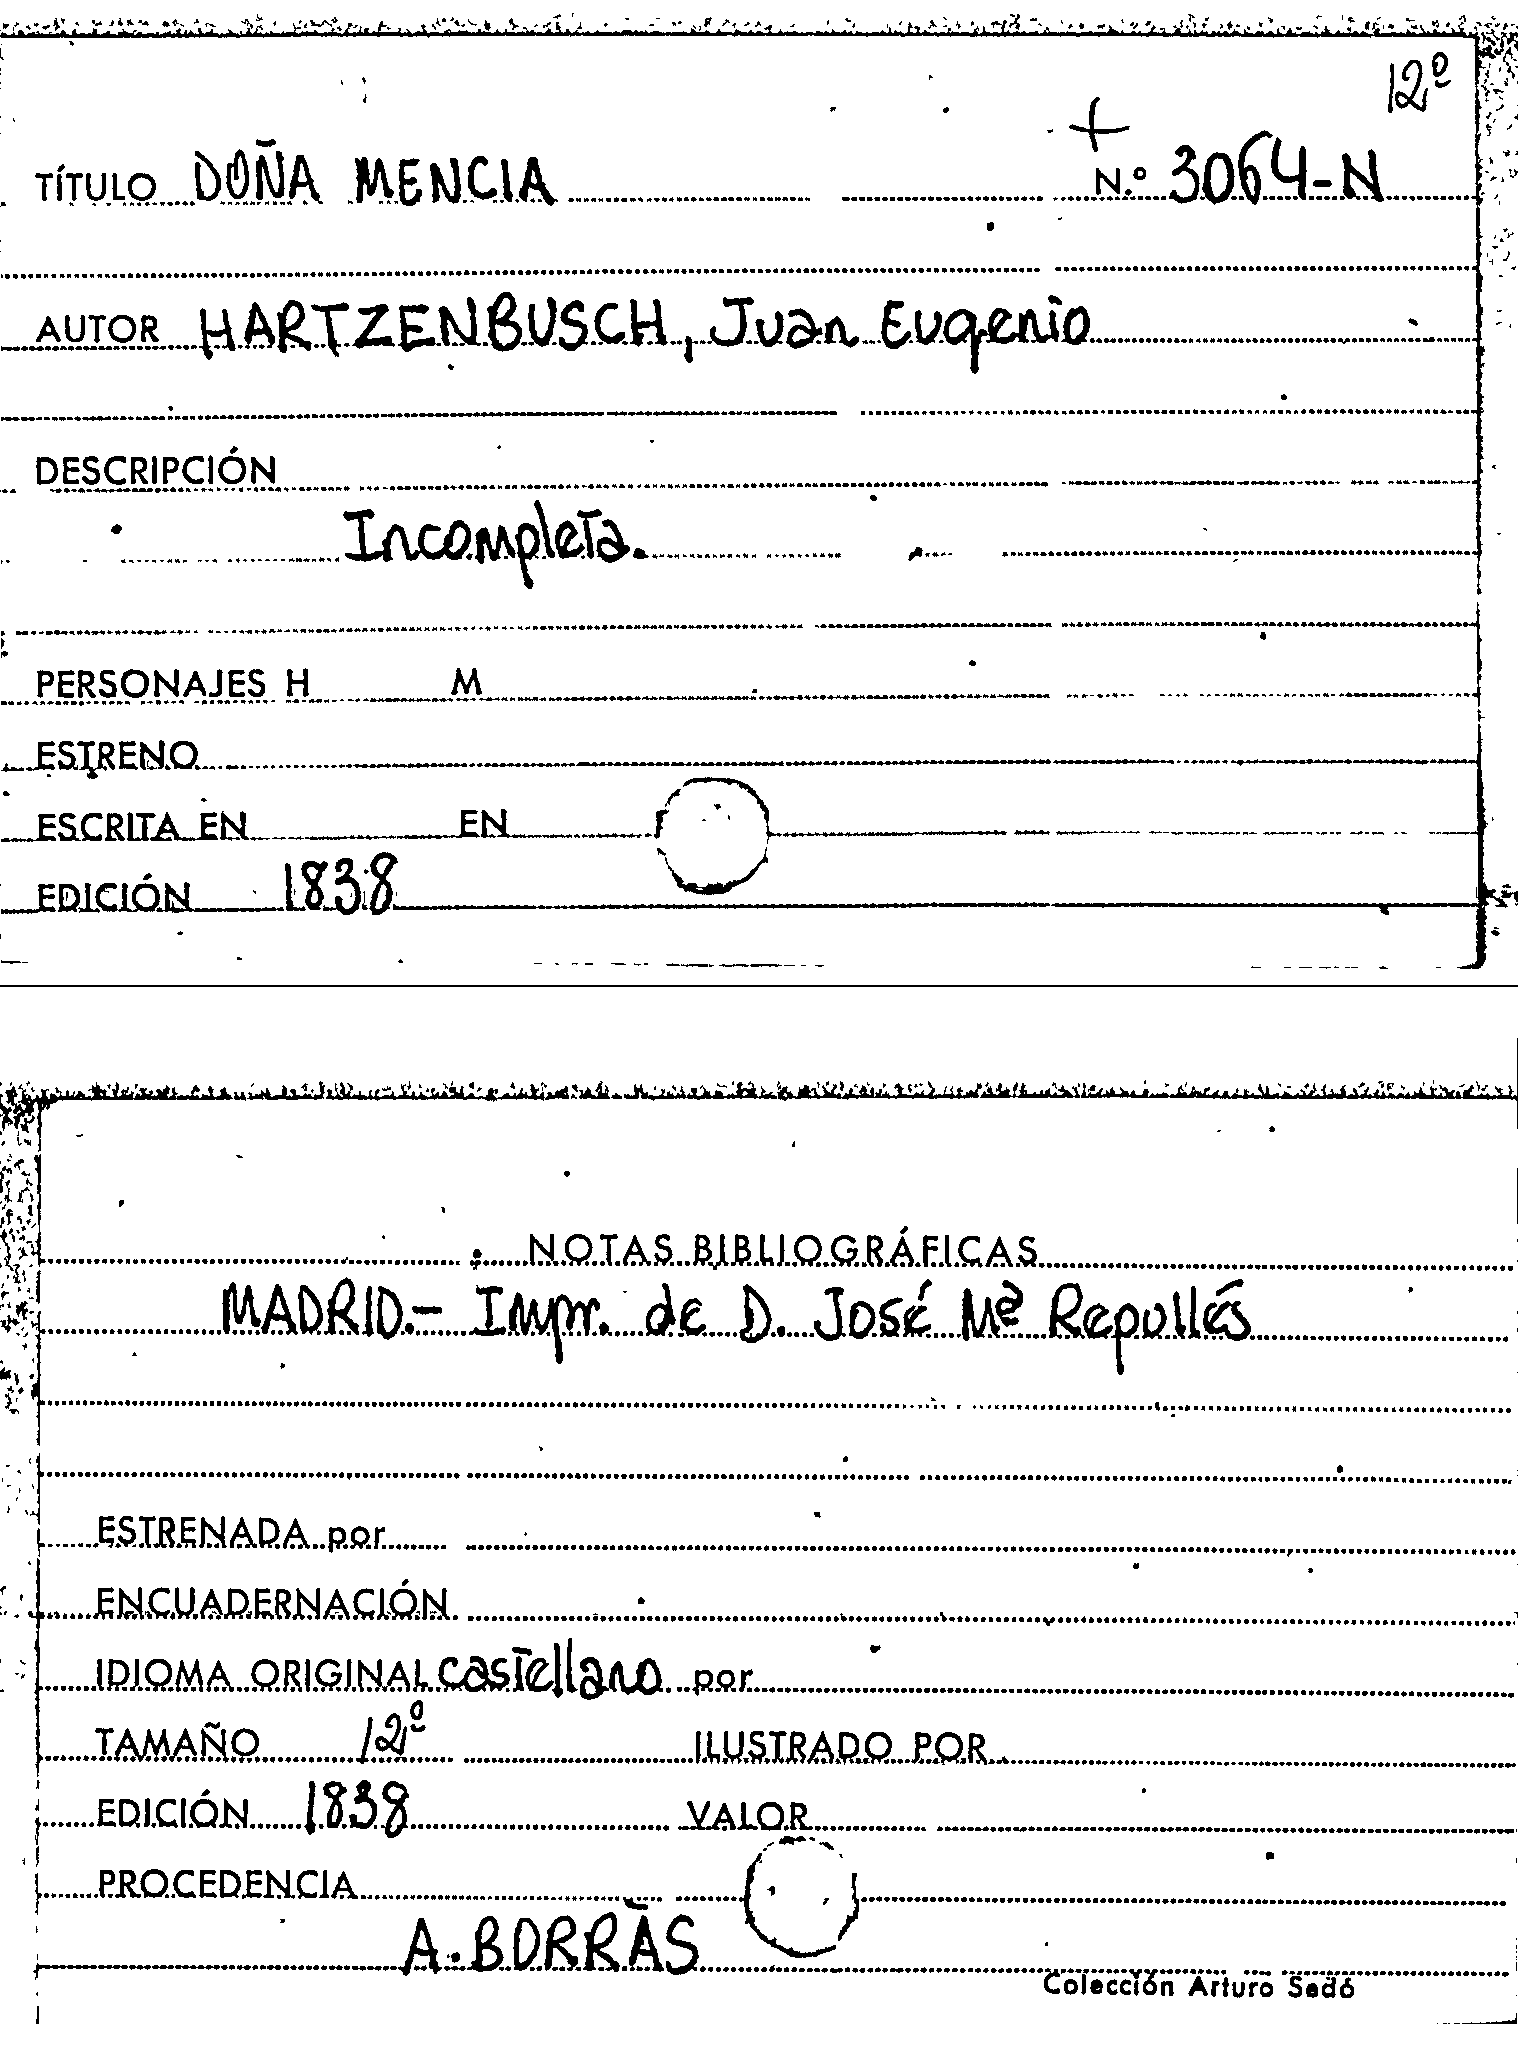 12º
+
TÍTULO DOÑA MENCIA N.º 3064-N
AUTOR HARTZENBUSCH, Juan Eugenio
DESCRIPCIÓN
Incompleta.
PERSONAJES H M
ESTRENO
ESCRITA EN EN
EDICIÓN 1838
NOTAS BIBLIOGRÁFICAS
MADRID.- Impr. de D. José Mª Repullés
ESTRENADA por
ENCUADERNACIÓN
IDIOMA ORIGINAL castellano por
TAMAÑO 12º ILUSTRADO POR
EDICIÓN 1838 VALOR
PROCEDENCIA
A. BORRÀS
Colección Arturo Sedó